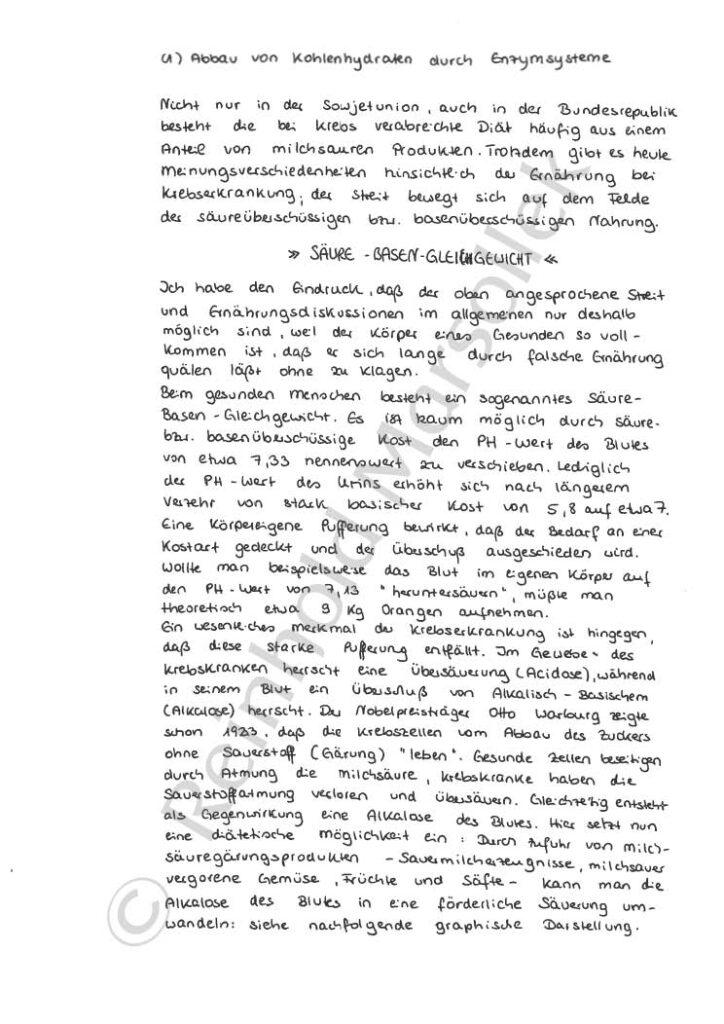 a) Abbau von Kohlenhydraten durch Enzymsysteme
Nicht nur in der Sowjetunion, auch in der Bundesrepublik
besteht die bei Krebs verabreichte Diät häufig aus einem
Anteil von milchsauren Produkten. Trotzdem gibt es heute
Meinungsverschiedenheiten hinsichtlich der Ernährung bei
Krebserkrankung; der Streit bewegt sich auf dem Felde
der säureüberschüssigen bzw. basenüberschüssigen Nahrung.
» SÄURE - BASEN-GLEICHGEWICHT «
Ich habe den Eindruck, daß der oben angesprochene Streit
und Ernährungsdiskussionen im allgemeinen nur deshalb
möglich sind, weil der Körper eines Gesunden so voll-
kommen ist, daß er sich lange durch falsche Ernährung
quälen läßt ohne zu klagen.
Beim gesunden Menschen besteht ein sogenanntes Säure-
Basen-Gleichgewicht. Es ist kaum möglich durch säure-
bzw. basenüberschüssige Kost den PH-Wert des Blutes
von etwa 7,33 nennenswert zu verschieben. Lediglich
der PH-Wert des Urins erhöht sich nach längerem
Verzehr von stark basischer Kost von 5,8 auf etwa 7.
Eine Körpereigene Pufferung bewirkt, daß der Bedarf an einer
Kostart gedeckt und der Überschuß ausgeschieden wird.
Wollte man beispielsweise das Blut im eigenen Körper auf
den PH-Wert von 7,13 "heruntersäuern", müßte man
theoretisch etwa 9 Kg Orangen aufnehmen.
Ein wesentliches Merkmal der Krebserkrankung ist hingegen,
daß diese starke Pufferung entfällt. Im Gewebe des
Krebskranken herrscht eine Übersäuerung (Acidose), während
in seinem Blut ein Überschuß von Alkalisch-Basischem
(Alkalose) herrscht. Der Nobelpreisträger Otto Warburg zeigte
schon 1923, daß die Krebszellen vom Abbau des Zuckers
ohne Sauerstoff (Gärung) "leben". Gesunde Zellen beseitigen
durch Atmung die Milchsäure, Krebskranke haben die
Sauerstoffatmung verloren und übersäuern. Gleichzeitig entsteht
als Gegenwirkung eine Alkalose des Blutes. Hier setzt nun
eine diätetische Möglichkeit ein: Durch Zufuhr von Milch-
säuregärungsprodukten - Sauermilcherzeugnisse, milchsauer
vergorene Gemüse, Früchte und Säfte - kann man die
Alkalose des Blutes in eine förderliche Säuerung um-
wandeln: siehe nachfolgende graphische Darstellung.
© Reinhold Marsollek